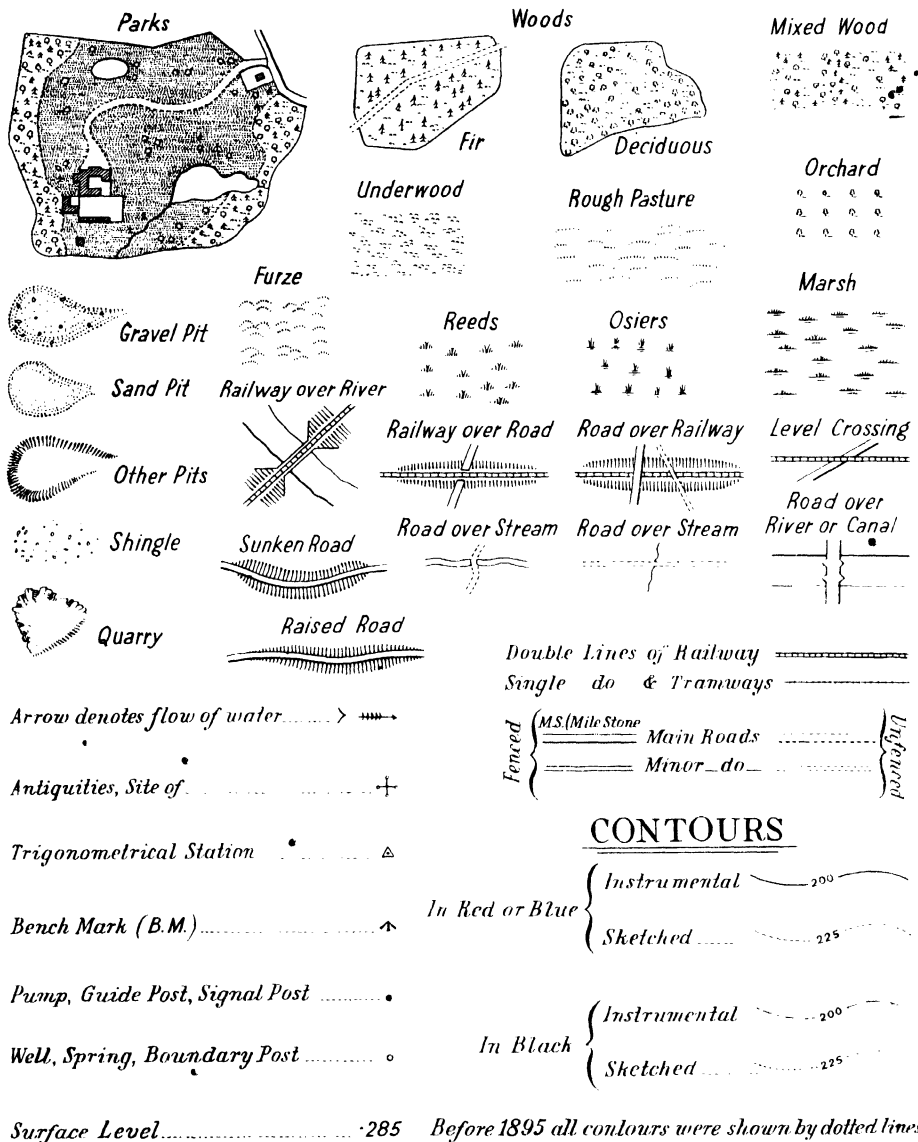 Parks
Woods
Mixed Wood
Fir
Deciduous
Underwood
Rough Pasture
Orchard
Furze
Marsh
Gravel Pit
Reeds
Osiers
Sand Pit
Railway over River
Railway over Road
Road over Railway
Level Crossing
Other Pits
Road over
River or Canal
Road over Stream
Road over Stream
Shingle
Sunken Road
Quarry
Raised Road
Double Lines of Railway
Single do & Tramways
Arrow denotes flow of water
Fenced
M.S.(Mile Stone
Main Roads
Minor do
Unfenced
Antiquities, Site of
Trigonometrical Station
Bench Mark (B.M.)
Pump, Guide Post, Signal Post
Well, Spring, Boundary Post
Surface Level ·285
CONTOURS
In Red or Blue
Instrumental 200
Sketched 225
In Black
Instrumental 200
Sketched 225
Before 1895 all contours were shown by dotted lines